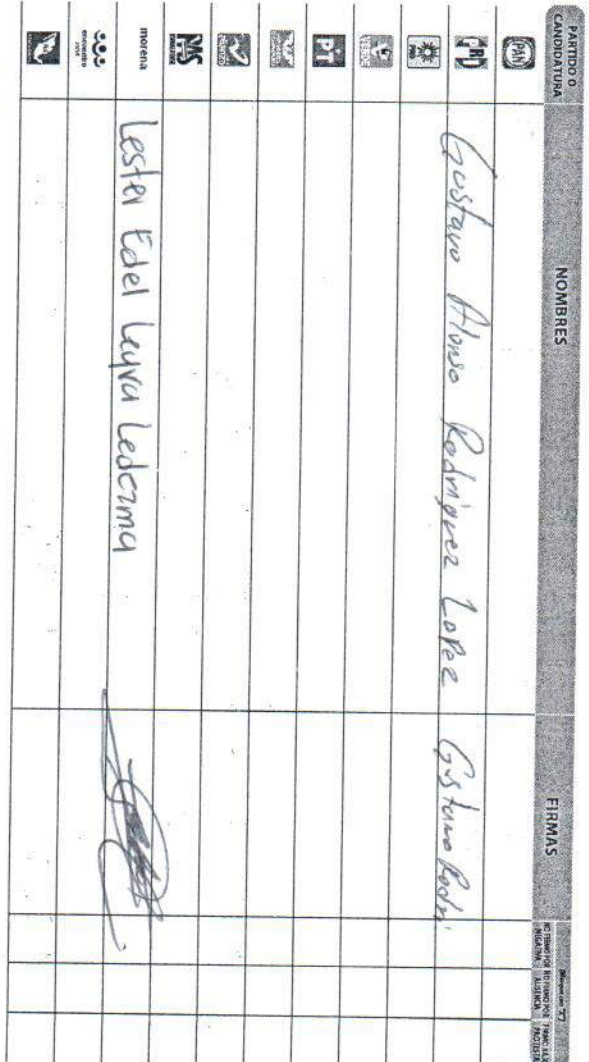 PARTIDO O CANDIDATURA NOMBRES FIRMAS (Marque con "X")
NO FIRMÓ POR NEGATIVA NO FIRMÓ POR AUSENCIA FIRMÓ BAJO PROTESTA
PAN
PRI Gustavo Alonso Rodriguez Lopez Gustavo Rodri
PRD
VERDE
PT
morena Lester Edel Leyva Ledezma
encuentro